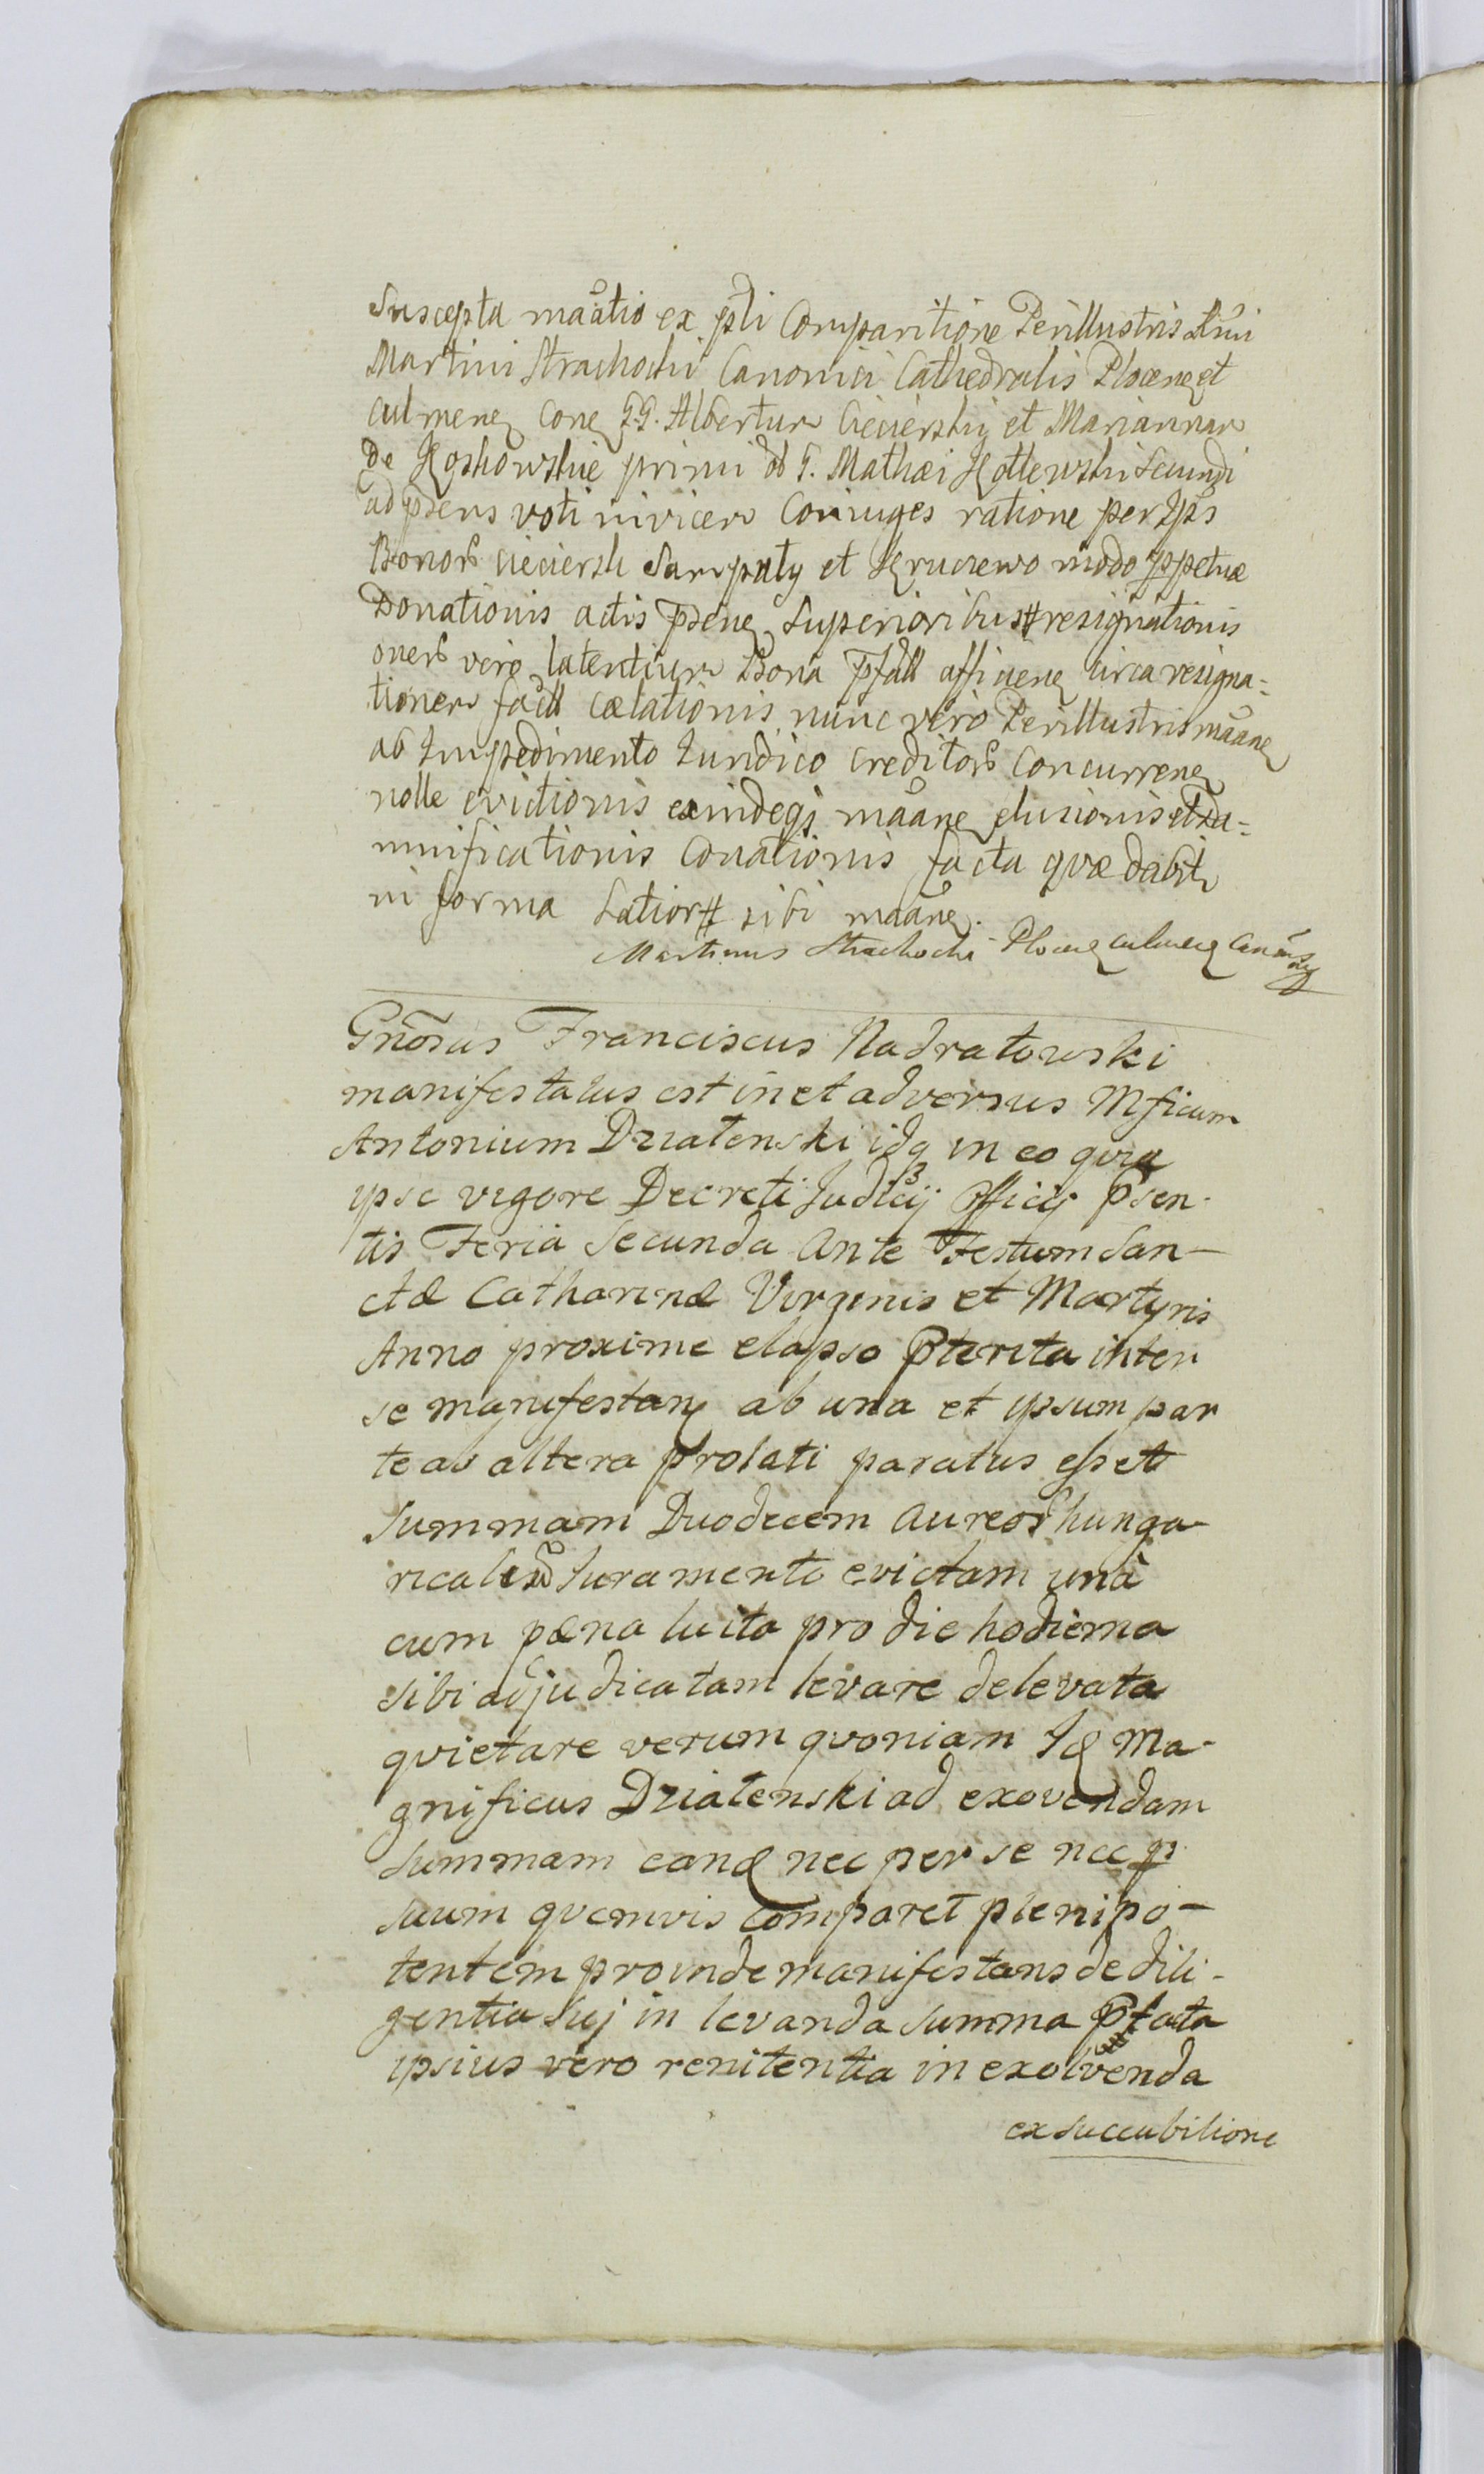 Suscepta māātio ex pti Comparitione Perillustris Rmi
Martini Strachocki Canonici Cathedralis Plocen et
culmen con GG. Albertum Ciecierski et Mariannam
de Koskowskie primi G. Mathæi Kotlewski Secundi
ad psens voti invicem Coniuges ratione per Ips
Bonor Ciecierzk Sarnpaty et Kruczewo modo ppetuæ
Donationis actis psen Superioribus resignationis
oner vero latentium Bona affi circa resigna=
tionem fact cælationis nunc vero Perillustris māan
ab Impedimento Iuridico creditor Concurren
nolle evictionis exindeq māan elusionis et da=
mnificationis Conationis facta quæ dabit
in forma Latior sibi māan.
Martinus Strachocki Plocen culmen Can
Gnōsus Franciscus Nadratowski
manifestatus est in et adversus Mficum
Antonium Dziatenski idq in eo quia
ipse vigore Decreti Judicij Officij psen-
tis Feria Secunda Ante Festum San-
ctæ Catharinæ Virginis et Martyris
Anno proxime elapso Pterita inter
se manifestan ab una et ipsum par
te ab altera prolati paratus esset
Summam Duodecem Aureor hunga
ricaliu Iuramento evictam unà
cum pæna luita pro die hodierna
sibi adjudicatam levare delevata
quietare verum quoniam Id Ma-
gnificus Dziatenski ad exovendam
Summam eand nec per se nec p
suum quemvis comparet plenipo-
tentem proinde manifestans de dili-
gentia Suj in levanda Summa Pfata
ipsius vero renitentia in exolvenda
ex succubitione